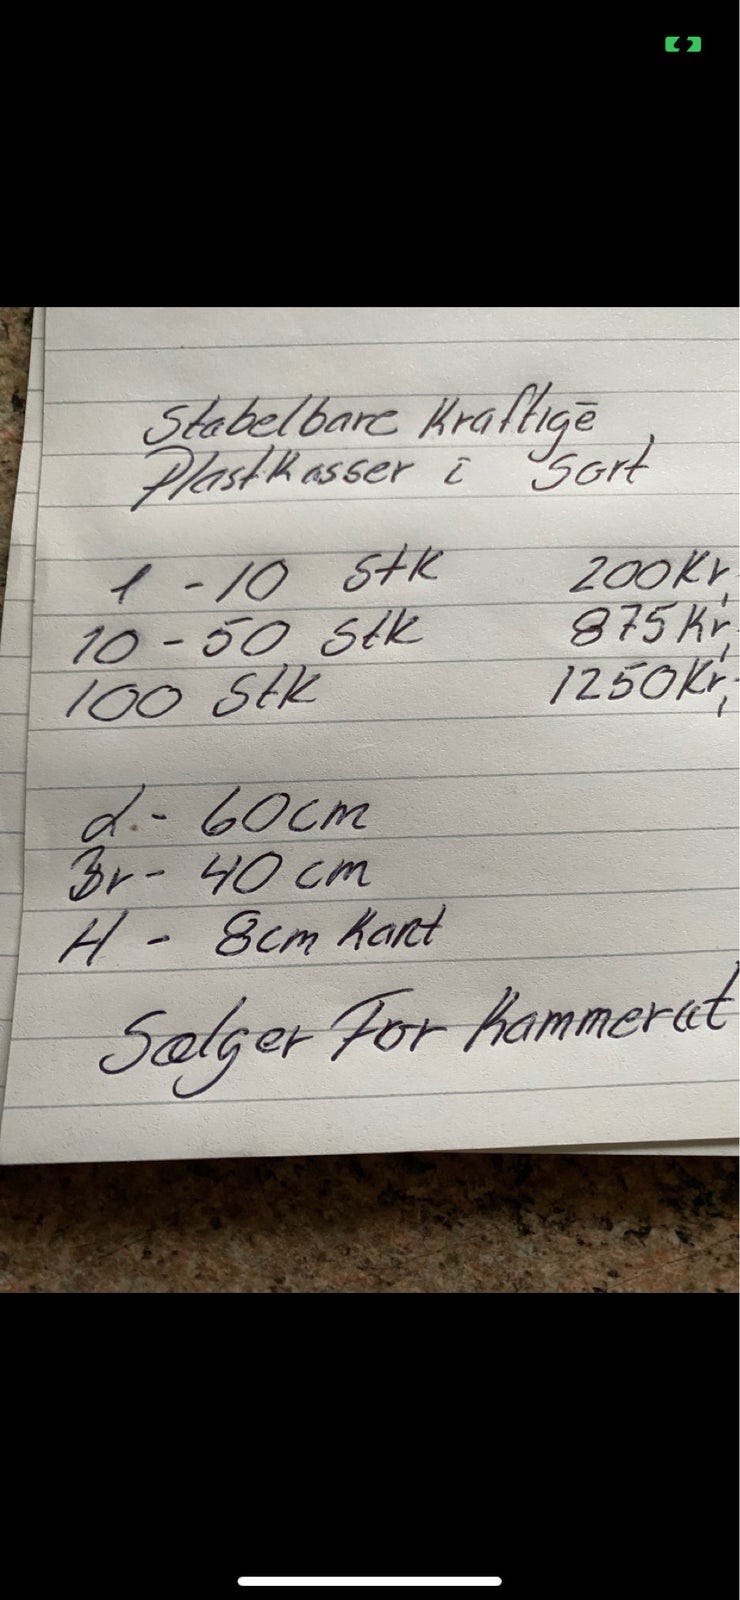 Stabelbare Kraftige
Plastkasser i Sort
1 - 10 Stk 200Kr,
10 - 50 Stk 875Kr,
100 Stk 1250Kr,
L - 60cm
Br - 40 cm
H - 8cm Kant
Sælger For Kammerat